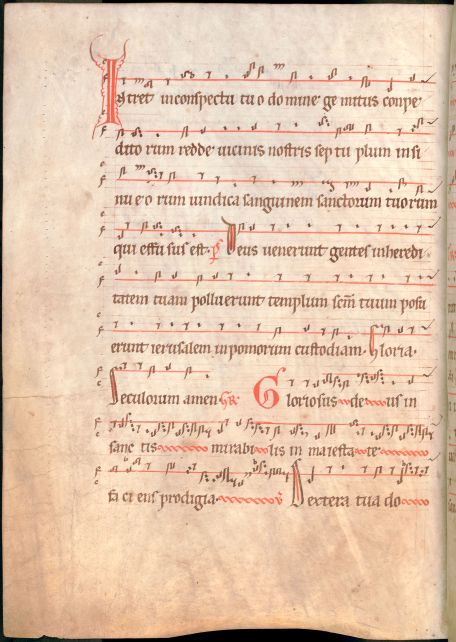 Intret in conspectu tu o domine ge mitus conpe
dito rum redde vicinis nostris sep tu plum in si
nu e o rum vindica sanguinem sanctorum tuorum
qui effu sus est. ps Deus venerunt gentes in heredi
tatem tuam polluerunt templum scm tuum posu
erunt ierusalem in pomorum custodiam. Gloria.
Seculorum amen. GR. Gloriosus deus in
sanc tis mirabi lis in maiesta te
fa ci ens prodigia. V Dextera tua do